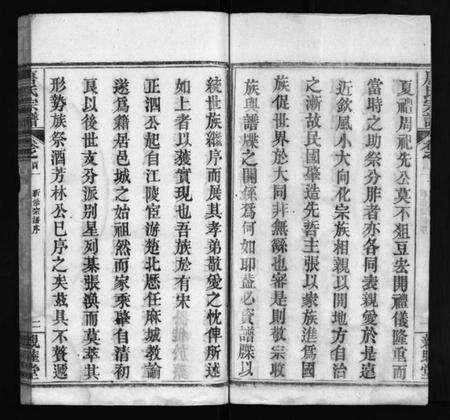 夏禴周祀先公莫不俎豆宏開禮儀隆重而
當時之助祭分胙者亦各同表親愛於是遠
近欽風小大向化宗族相親以開地方自治
之漸故民國肇造先哲主張以家族進爲國
族促世界於大同非無緣也審是則敬宗收
族與譜牒之關係爲何如耶益必資譜牒以
統世族繼序而展其孝弟敬愛之忱俾所述
如上者以獲實現也吾族於有宋
正泗公起自江陵宦游楚北厯任麻城教諭
遂爲籍居邑城之始祖然而家乘肇自清初
良以後世支分派别星列棊張渙而莫萃其
形勢族祭酒芳林公已序之矣茲具不贅邇
氏宗譜
卷之首一
新修宗譜序
二
親睦堂